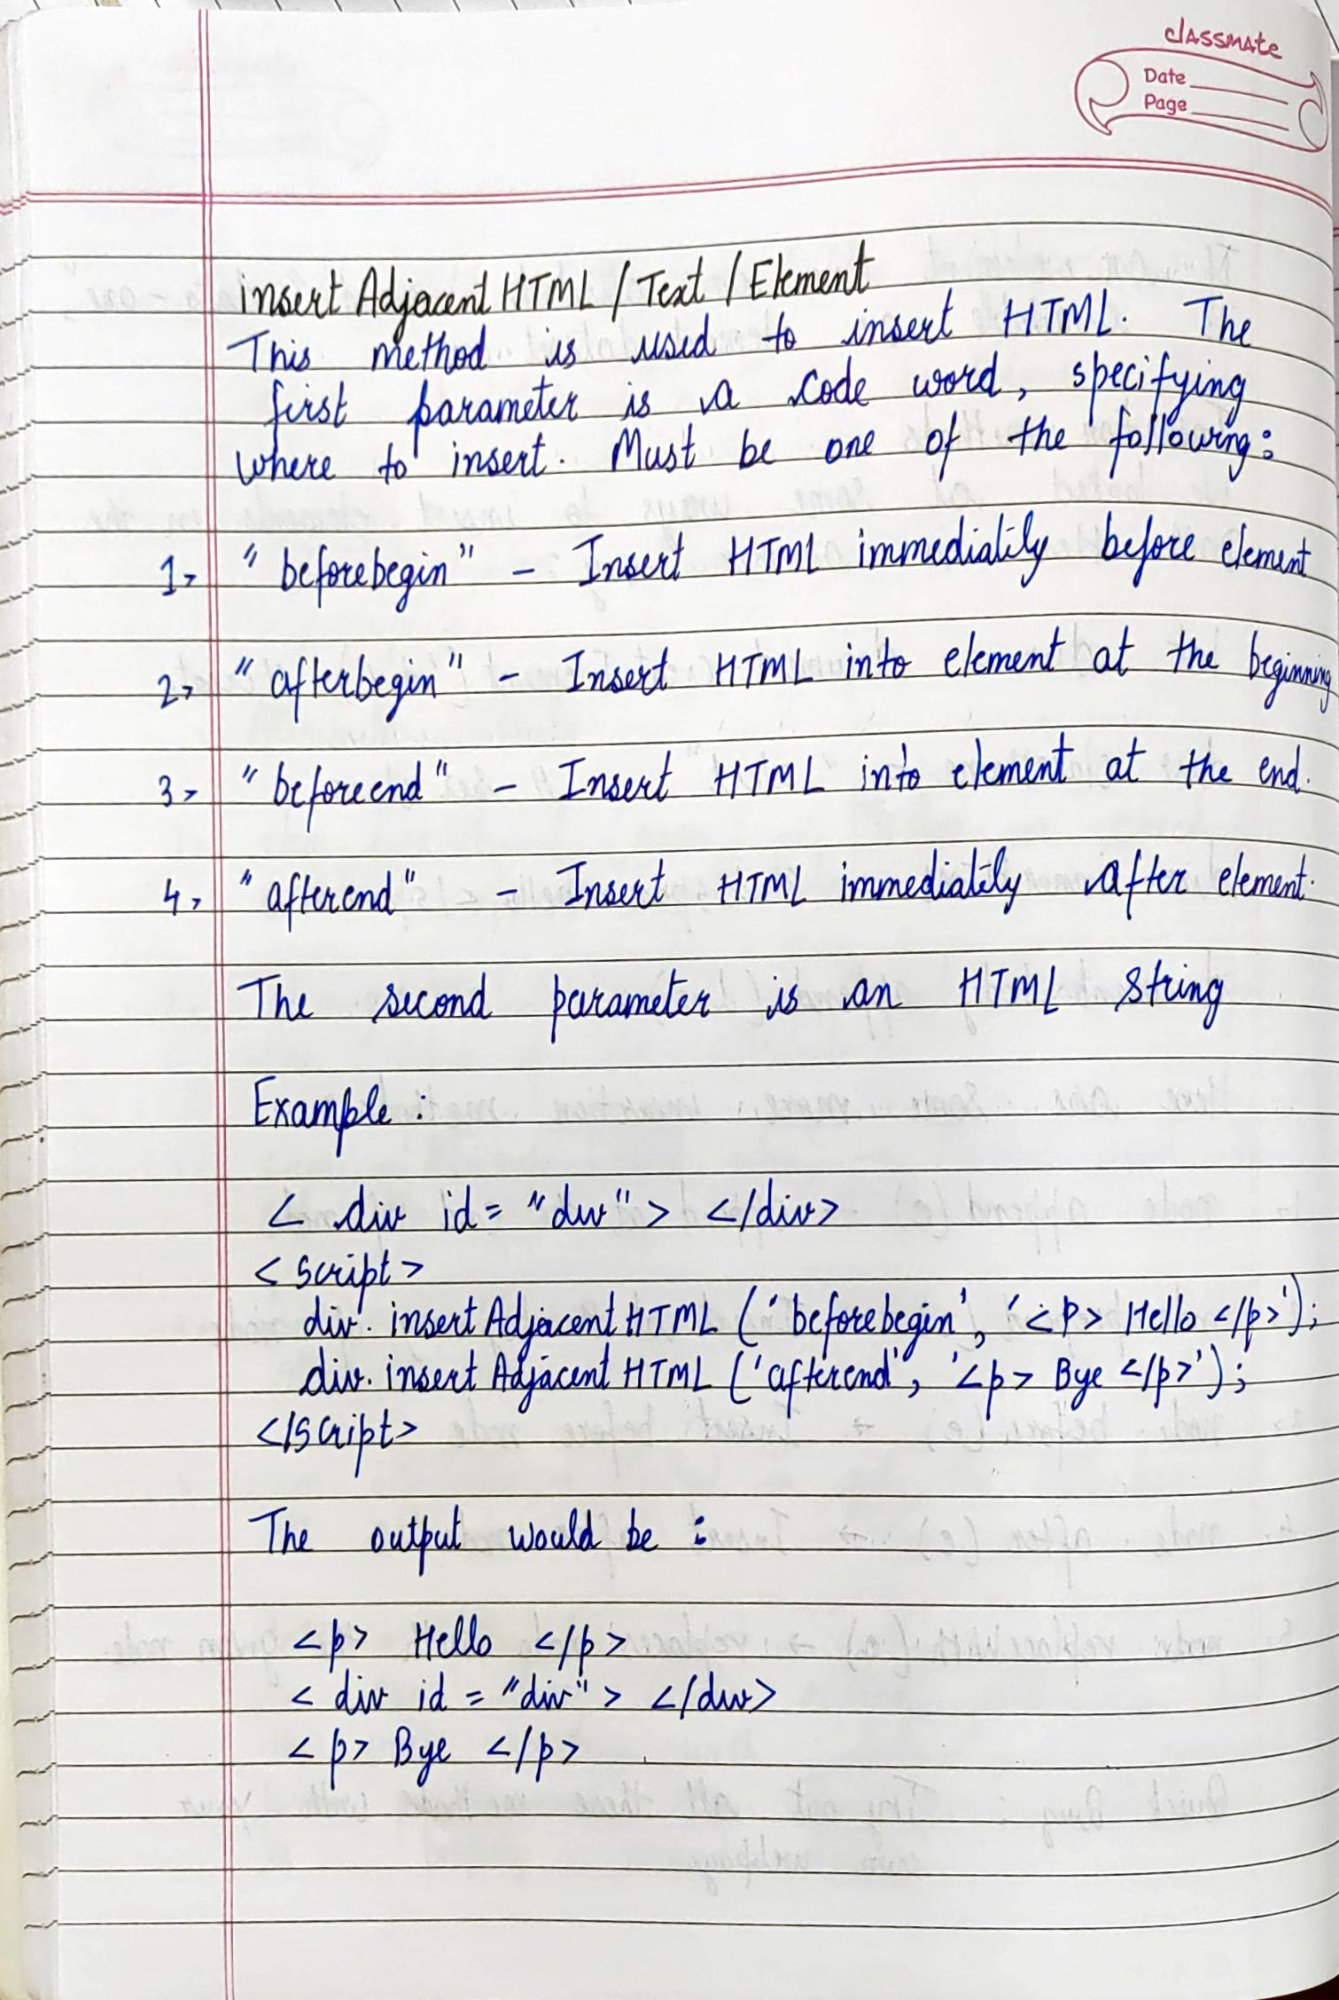 classmate
Date
Page
insert Adjacent HTML / Text / Element
This method is used to insert HTML. The
first parameter is a code word, specifying
where to insert. Must be one of the following:
1> "beforebegin" - Insert HTML immediatily before element
2> "afterbegin" - Insert HTML into element at the beginning
3> "beforeend" - Insert HTML into element at the end.
4> "afterend" - Insert HTML immediatily After element.
The second parameter is an HTML String
Example :
< div id = "div" > </div>
<script>
div. insert Adjacent HTML ('beforebegin', '<p> Hello </p>');
div. insert Adjacent HTML ('afterend', '<p> Bye </p>');
</script>
The output would be :
<p> Hello </p>
< div id = "div" > </div>
<p> Bye </p>